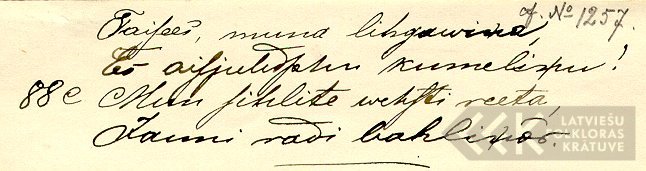 cf. № 1257.
Taisees, muna lihgawiņa,
Es aisjuhdschu kumeliņu!
88c Man sihlite wehsti nesa,
Jauni radi bahliņos.
LATVIEŠU
FOLKLORAS
KRĀTUVE